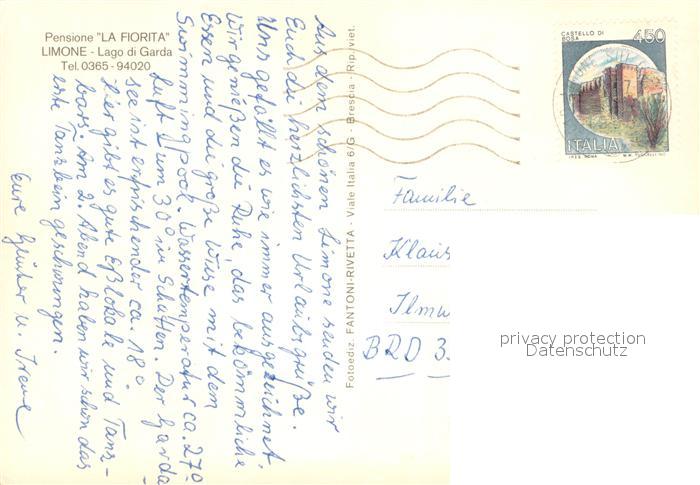 Pensione "LA FIORITA"
LIMONE - Lago di Garda
Tel. 0365 - 94020
Aus dem schönen Limone senden wir
Euch die herzlichsten Urlaubsgrüße.
Uns gefällt es wie immer ausgezeichnet.
Wir genießen die Ruhe, das bekömmliche
Essen und die große Wiese mit dem
Swimmingpool. Wassertemperatur ca. 27°
Luft um 30° im Schatten. Der Garda
see ist erfrischender ca. 18°
Hier gibt es gute Eßlokale und Tanz-
bars. Am 2. Abend haben wir schon das
erste Tanzbein geschwungen.
Eure Günter u. Irene
Fotoediz. FANTONI-RIVETTA - Viale Italia 6/G - Brescia - Rip. viet.
CASTELLO DI
BOSA
450
ITALIA
Familie
Klaus
Ilmw
BRD 3
privacy protection
Datenschutz